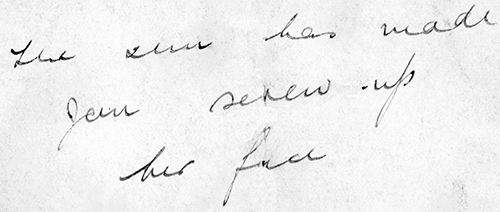 The sun has made
Jan screw up
her face